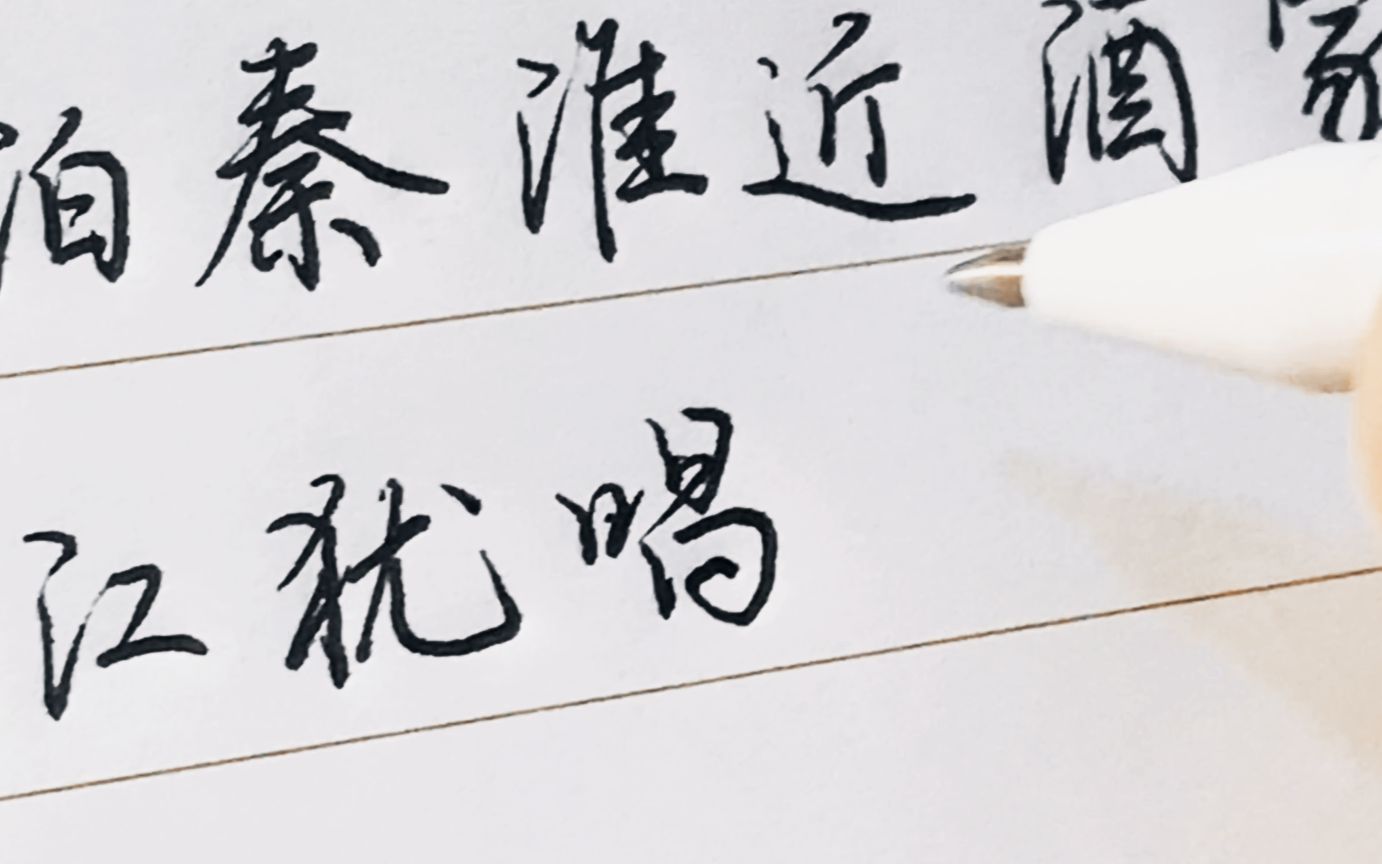 泊秦淮近酒家
江犹唱